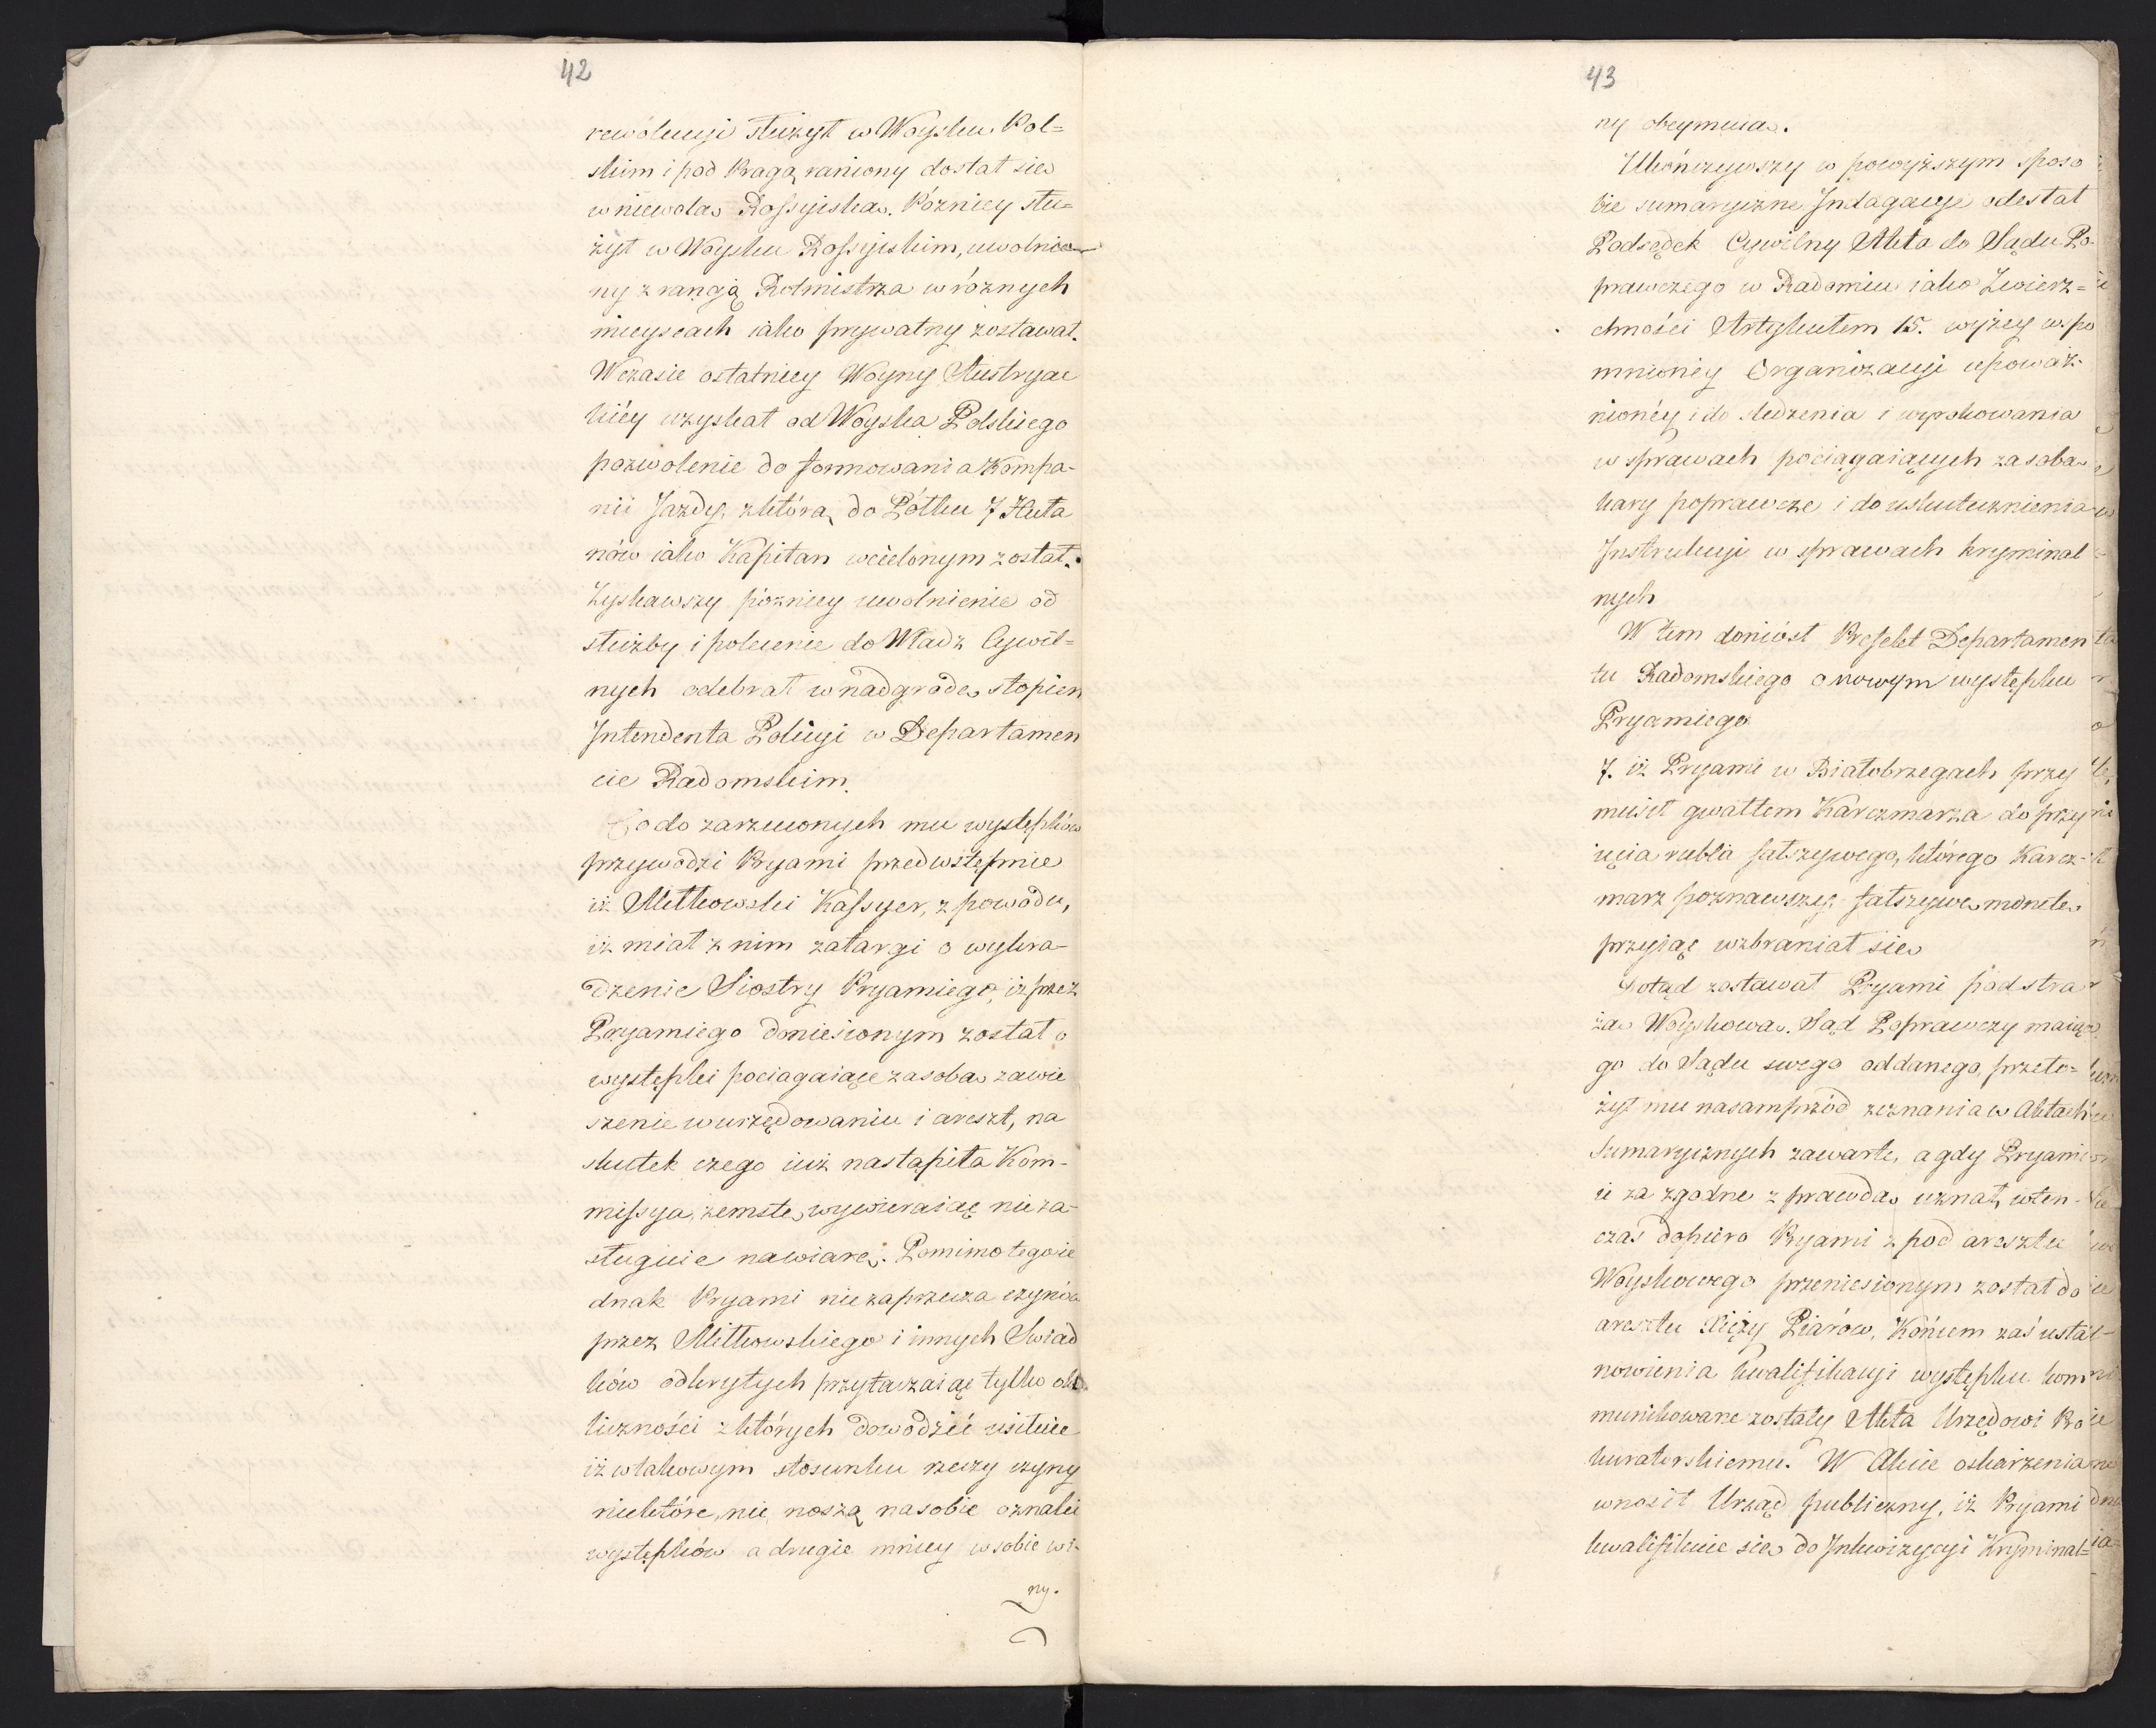 42
rewolucyi służył w Woysku Pol=
skim i pod Pragą raniony dostał się
w niewolą Rossyiską. Późniey słu=
żył w Woysku Rossyiskim, uwolnio
ny z rangą Rotmistrza w róznych
mieyscach iako prywatny zostawał.
W czasie ostatniey Woyny Austryac
kiéy uzyskał od Woyska Polskiego
pozwolenie do formowania Kompa-
nii Jazdy, z którą do Półku 7 Huła
nów iako Kapitan wcielonym został.
Zyskawszy pózniey uwolnienie od
służby i polecenie do Władz Cywil=
nych odebrał w nadgrodę stopien
Intendenta Policyi w Departamen
cie Radomskim.
Co do zarzuconych mu występków
przywodzi Pryami przedwstępnie
iż Mitkowski Kassyer, z powodu,
iż miał z nim zatargi o wykra-
dzenie Siostry Pryamiego, iż przez
Pryamiego doniesionym został o
występki pociągaiące za sobą zawie
szenie w urzędowaniu i areszt, na
skutek czego iuż nastąpiła Kom-
missya, zemstę wywieraiąc nie za-
sługuie na wiarę. Pomimo tego ie
dnak Pryami nie zaprzecza czynów
przez Mitkowskiego i innych Swiad
ków odkrytych przytaczaiąc tylko oko
liczności z których dowodzić usiłuie
iż w takowym stosunku rzeczy czyny
niektóre, nie noszą na sobie oznaki
występków a drugie mniey w sobie wi-
ny.
43
ny obeymuią.
Ukończywszy w powyższym sposo
bie sumaryczne Indagacye odesłał
Podsędek Cywilny Akta do Sądu Po-
prawczego w Radomiu iako Zwierz=
chności Artykułem 15. wyżey wspo
mnioney Organizacyi upoważ-
nionéy i do sledzenia i wyrokowania
w sprawach pociągaiących za sobą
kary poprawcze i do uskutecznienia
Instrukcyi w sprawach kryminal
nych
W tem doniósł Prefekt Departamen
tu Radomskiego o nowym występku
Pryamiego
7. iż Pryami w Białobrzegach przy
musił gwałtem Karczmarza do przy
ięcia rubla fałszywego, którego Karcz-
marz poznawszy fałszywą monetę
przyiąć wzbraniał się
Dotąd zostawał Pryami pod stra
żą Woyskową. Sąd Poprawczy maiąc
go do Sądu swego oddanego, przeło=
żył mu nasamprzód zeznania w Aktach
Sumarycznych zawarte, a gdy Pryami
ie za zgodne z prawdą uznał, wten-
czas dopiero Pryami z pod aresztu
Woyskowego przeniesionym został do
aresztu Xięży Piarów, Końcem zaś usta-
nowienia kwalifikacyi występku kom
munikowane zostały Akta Urzędowi Pro
kuratorskiemu. W Akcie oskarzenia
wnosił Urząd publiczny, iż Pryami
kwalifikuie się do Inkwizycyi Kryminal=